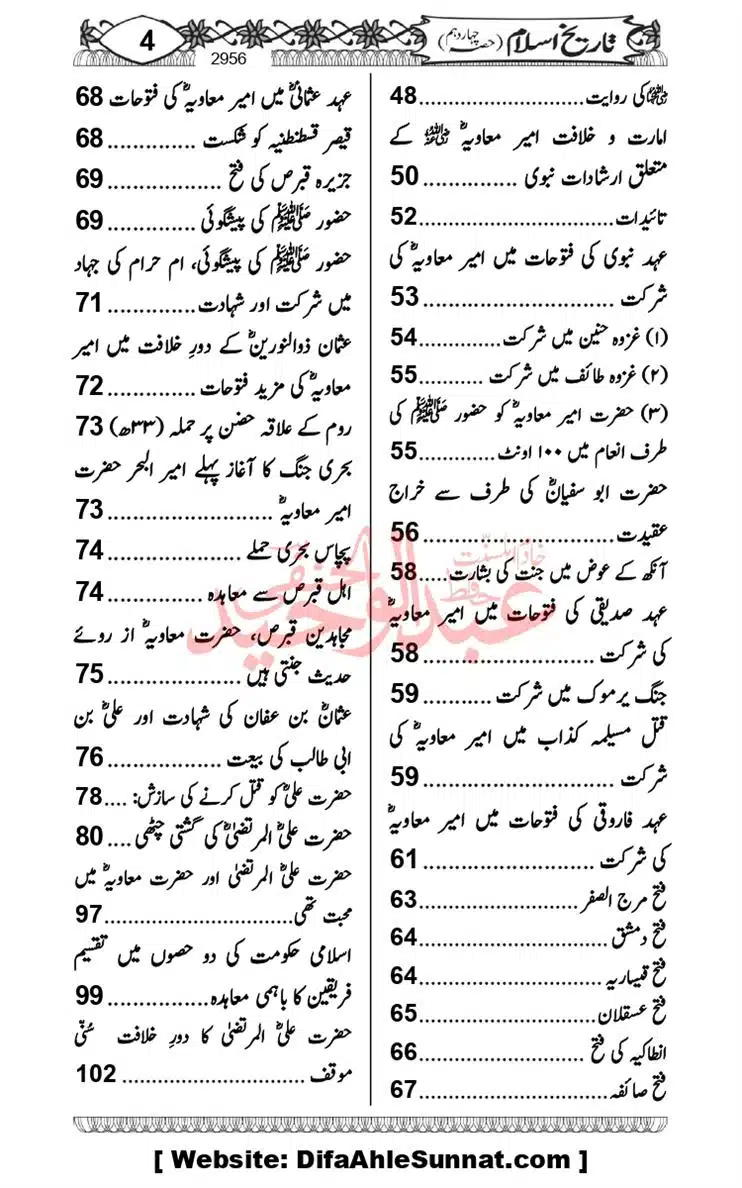 تاریخ اسلام (حصہ چہاردہم)
2956
4
ﷺ کی روایت............................48
امارت و خلافت امیر معاویہؓ ﷺ کے
متعلق ارشادات نبوی ................ 50
تائیدات.............................52
عہد نبوی کی فتوحات میں امیر معاویہؓ کی
شرکت ............................. 53
(۱) غزوہ حنین میں شرکت.............54
(۲) غزوہ طائف میں شرکت ........... 55
(۳) حضرت امیر معاویہؓ کو حضور ﷺ کی
طرف انعام میں ۱۰۰ اونٹ.............55
حضرت ابو سفیانؓ کی طرف سے خراج
عقیدت............................. 56
آنکھ کے عوض میں جنت کی بشارت.....58
عہد صدیقی کی فتوحات میں امیر معاویہؓ
کی شرکت ......................... 58
جنگ یرموک میں شرکت ........... 59
قتل مسیلمہ کذاب میں امیر معاویہؓ کی
شرکت ............................. 59
عہد فاروقی کی فتوحات میں امیر معاویہؓ
کی شرکت ......................... 61
فتح مرج الصفر.......................63
فتح دمشق............................ 64
فتح قیساریہ ......................... 64
فتح عسقلان..........................65
انطاکیہ کی فتح ...................... 66
فتح صائفہ............................67
عہد عثمانیؓ میں امیر معاویہؓ کی فتوحات 68
قیصر قسطنطنیہ کو شکست .............. 68
جزیرہ قبرص کی فتح .................. 69
حضور ﷺ کی پیشگوئی .............. 69
حضور ﷺ کی پیشگوئی، ام حرام کی جہاد
میں شرکت اور شہادت.............. 71
عثمان ذوالنورینؓ کے دورِ خلافت میں امیر
معاویہؓ کی مزید فتوحات .............. 72
روم کے علاقہ حضن پر حملہ (۳۳ھ) 73
بحری جنگ کا آغاز پہلے امیر البحر حضرت
امیر معاویہؓ ......................... 73
پچاس بحری حملے .................... 74
اہل قبرص سے معاہدہ ................ 74
مجاہدین قبرص، حضرت معاویہؓ از روئے
حدیث جنتی ہیں ..................... 75
عثمانؓ بن عفان کی شہادت اور علیؓ بن
ابی طالب کی بیعت .................. 76
حضرت علیؓ کو قتل کرنے کی سازش: .... 78
حضرت علیؓ المرتضیٰؓ کی گشتی چٹھی .... 80
حضرت علیؓ المرتضیٰ اور حضرت معاویہؓ میں
محبت تھی.............................97
اسلامی حکومت کی دو حصوں میں تقسیم
فریقین کا باہمی معاہدہ................ 99
حضرت علیؓ المرتضیٰ کا دورِ خلافت سُنّی
موقف ............................ 102
خادم اہلسنت
حافظ عبدالوحید الحنفی
[ Website: DifaAhleSunnat.com ]